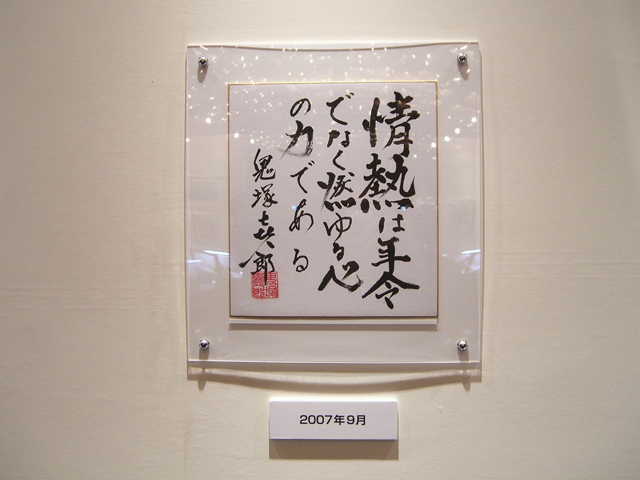 情熱は年令
でなく燃ゆる心
の力である
鬼塚喜八郎
2007年9月